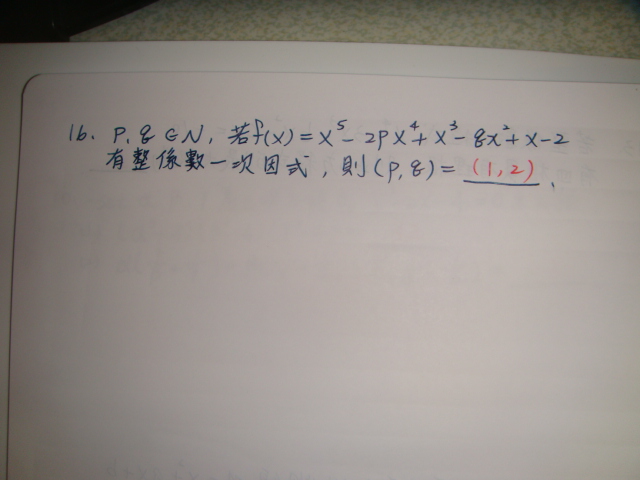 16. P, q ∈ N, 若f(x) = x⁵ - 2px⁴ + x³ - qx² + x - 2
有整係數一次因式, 則(p, q) = (1, 2).